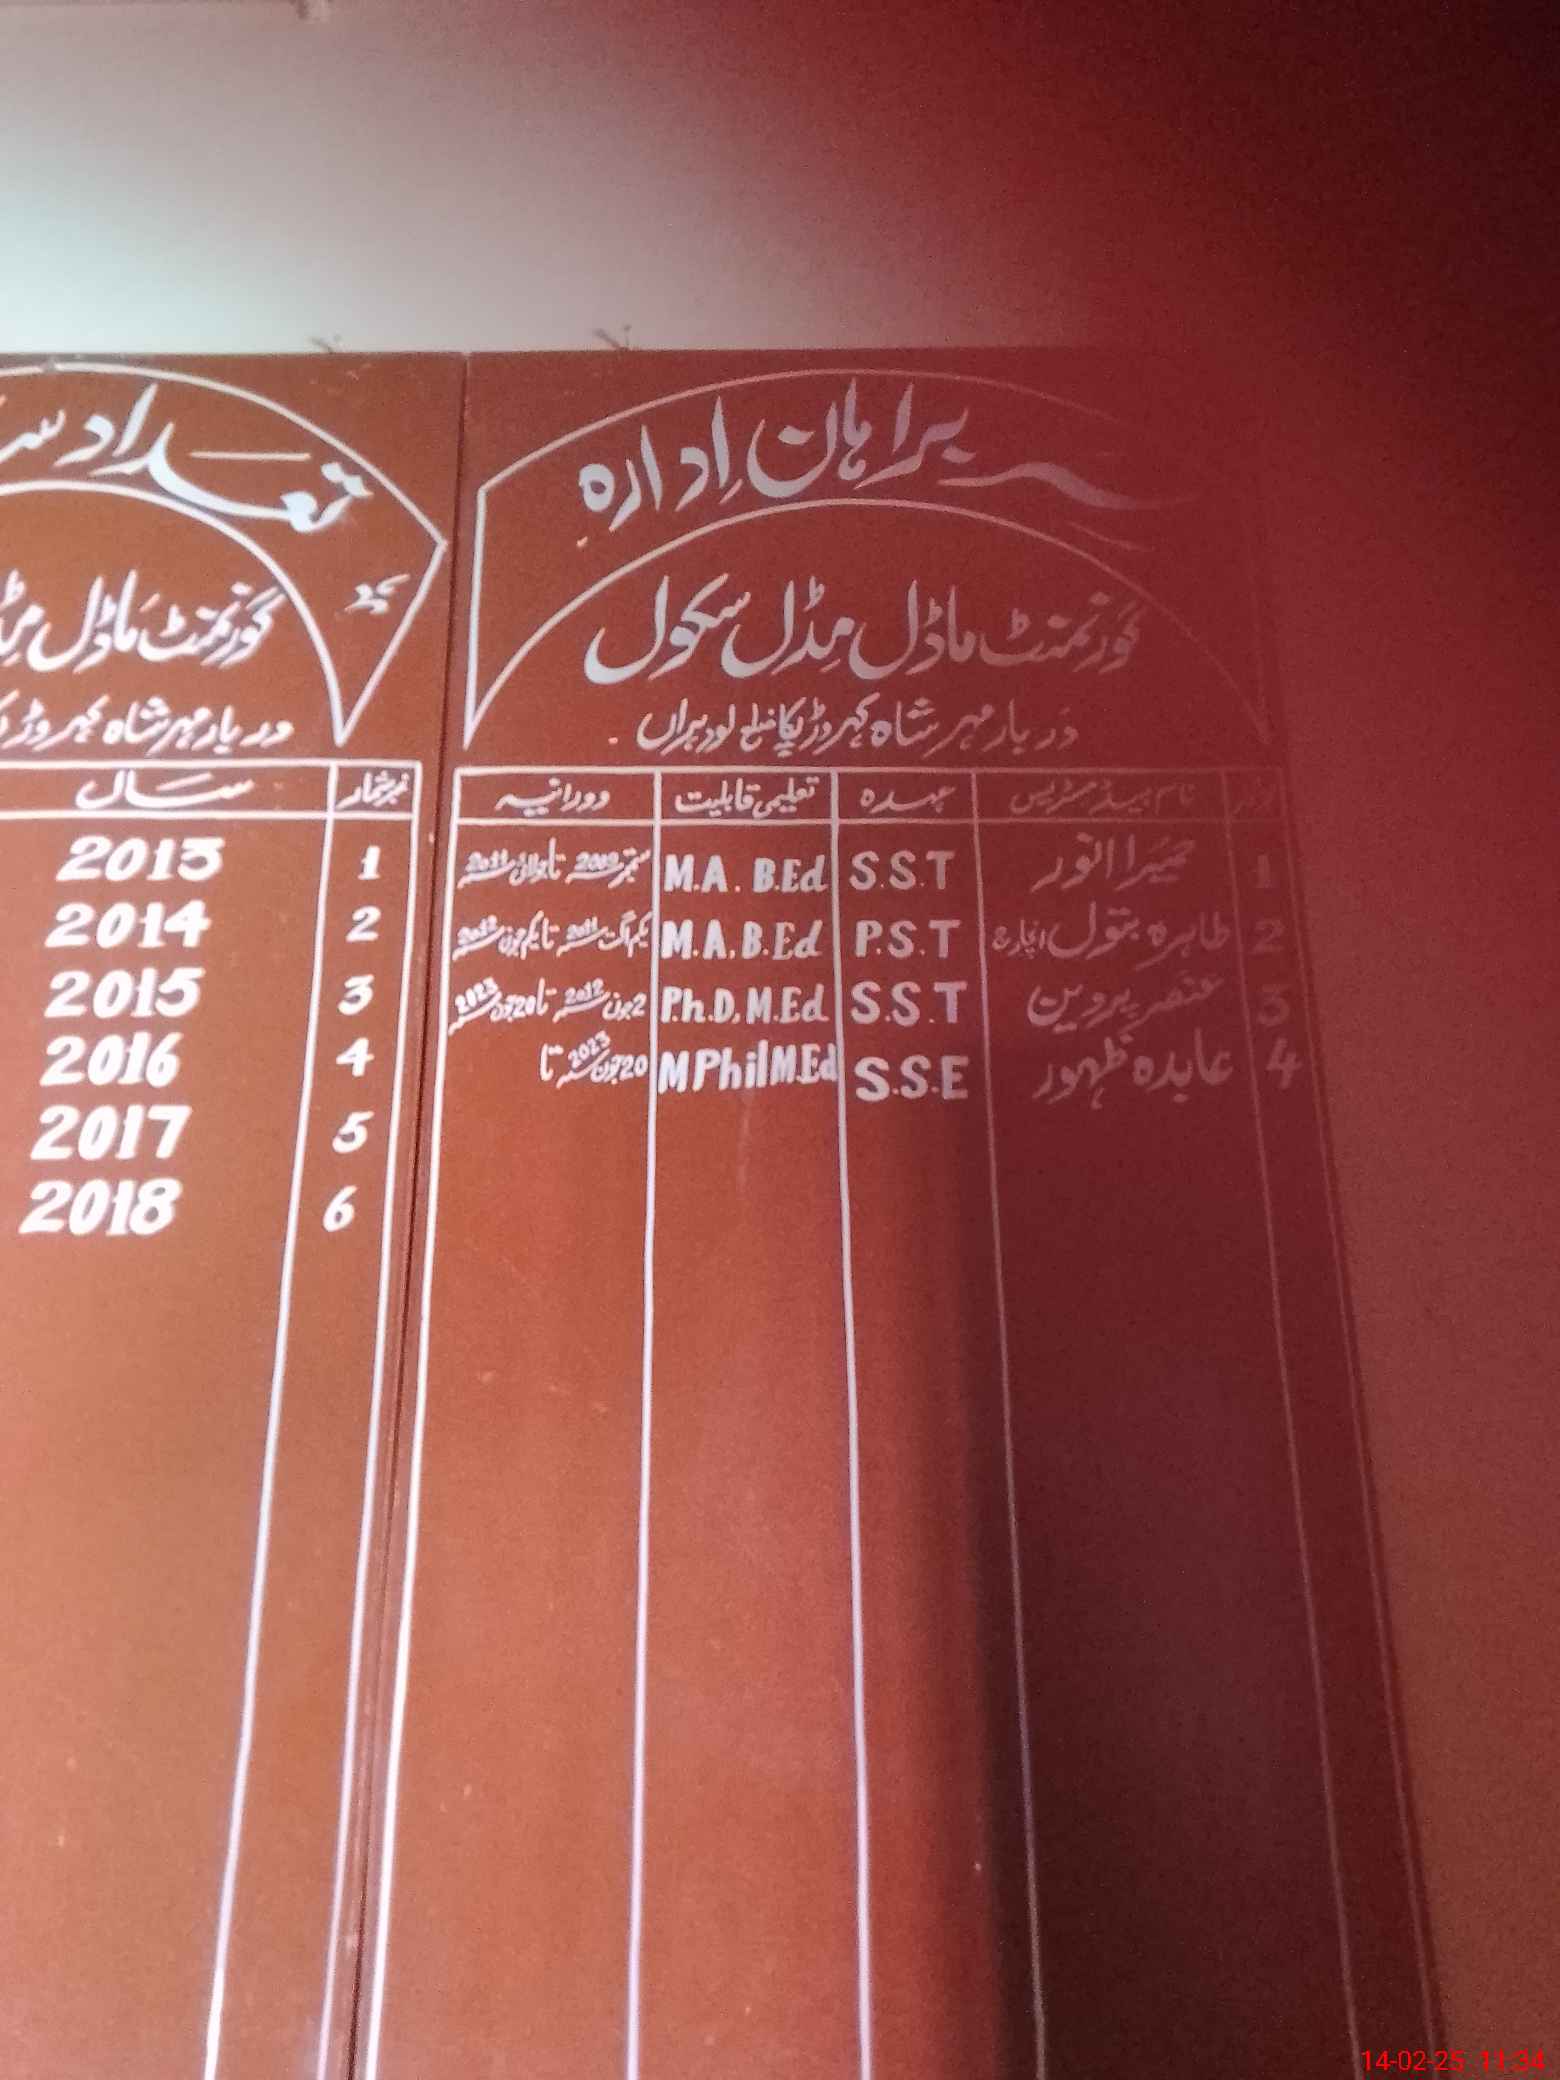 سربراہان اِدارہ
گورنمنٹ ماڈل مِڈل سکول
دربار مہر شاہ کہروڑ پکا ضلع لودہراں
نام ہیڈ مسٹریس عہدہ تعلیمی قابلیت دورانیہ
1 حمیرا انور S.S.T M.A. B.Ed ستمبر تا جولائی 2011
2 طاہرہ بتول انچارج P.S.T M.A. B.Ed یکم اگست 2011 تا یکم جون 2012
3 عنصر پروین S.S.T P.h.D. M.Ed 2 جون 2012 تا 20 جون 2023
4 عابدہ ظہور S.S.E M Phil M.Ed 20 جون 2023 تا
تعداد
گورنمنٹ ماڈل
دربار مہر شاہ کہروڑ
نمبر شمار سال
1 2013
2 2014
3 2015
4 2016
5 2017
6 2018
14-02-25 11:34